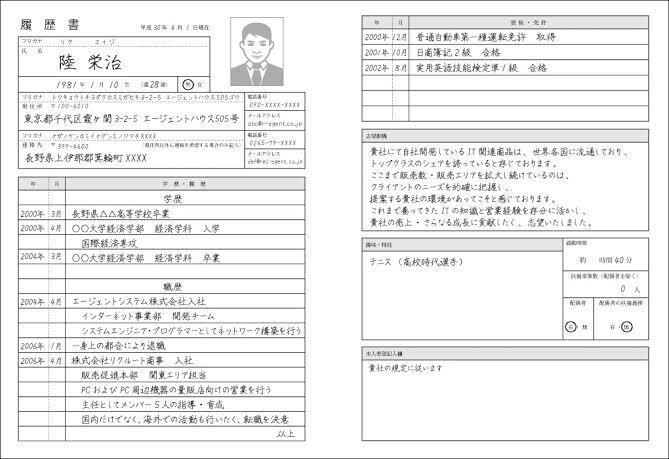 履歴書
平成30年 4月 1日現在
フリガナ リク エイジ
氏名 陸 栄治
1981年 1月 10日生 (満28歳) 男・女
フリガナ トウキョウトチヨダクカスミガセキ3-2-5 エージェントハウス505ゴウ
現住所 〒100-6010
東京都千代田区霞ヶ関3-2-5 エージェントハウス505号
電話番号
090-XXXX-XXXX
メールアドレス
abc@r-agent.co.jp
フリガナ ナガノケンカミイナグンミノワマチXXXX
連絡先 〒399-4600 (現住所以外に連絡を希望する場合のみ記入)
長野県上伊那郡箕輪町XXXX
電話番号
0265-79-XXXX
メールアドレス
def@rec-agent.co.jp
年 月 学歴・職歴
学歴
2000年 3月 長野県△△高等学校卒業
2000年 4月 〇〇大学経済学部 経済学科 入学
国際経済専攻
2004年 3月 〇〇大学経済学部 経済学科 卒業
職歴
2004年 4月 エージェントシステム株式会社入社
インターネット事業部 開発チーム
システムエンジニア・プログラマーとしてネットワーク構築を行う
2006年 1月 一身上の都合により退職
2006年 4月 株式会社リクルート商事 入社
販売促進本部 関東エリア担当
PCおよびPC周辺機器の量販店向けの営業を行う
主任としてメンバー5人の指導・育成
国内だけでなく、海外での活動も行いたく、転職を決意
以上
年 月 資格・免許
2000年 12月 普通自動車第一種運転免許 取得
2001年 10月 日商簿記2級 合格
2002年 8月 実用英語技能検定準1級 合格
志望動機
貴社にて自社開発しているIT関連商品は、世界各国に流通しており、
トップクラスのシェアを誇っていると存じております。
ここまで販売数・販売エリアを拡大し続けているのは、
クライアントのニーズを的確に把握し、
提案する貴社の環境があってこそと感じております。
これまで養ってきたITの知識と営業経験を存分に活かし、
貴社の売上・さらなる成長に貢献したく、志望いたしました。
趣味・特技
テニス (高校時代選手)
通勤時間
約 時間40分
扶養家族数(配偶者を除く)
0 人
配偶者
有・無
配偶者の扶養義務
有・無
本人希望記入欄
貴社の規定に従います